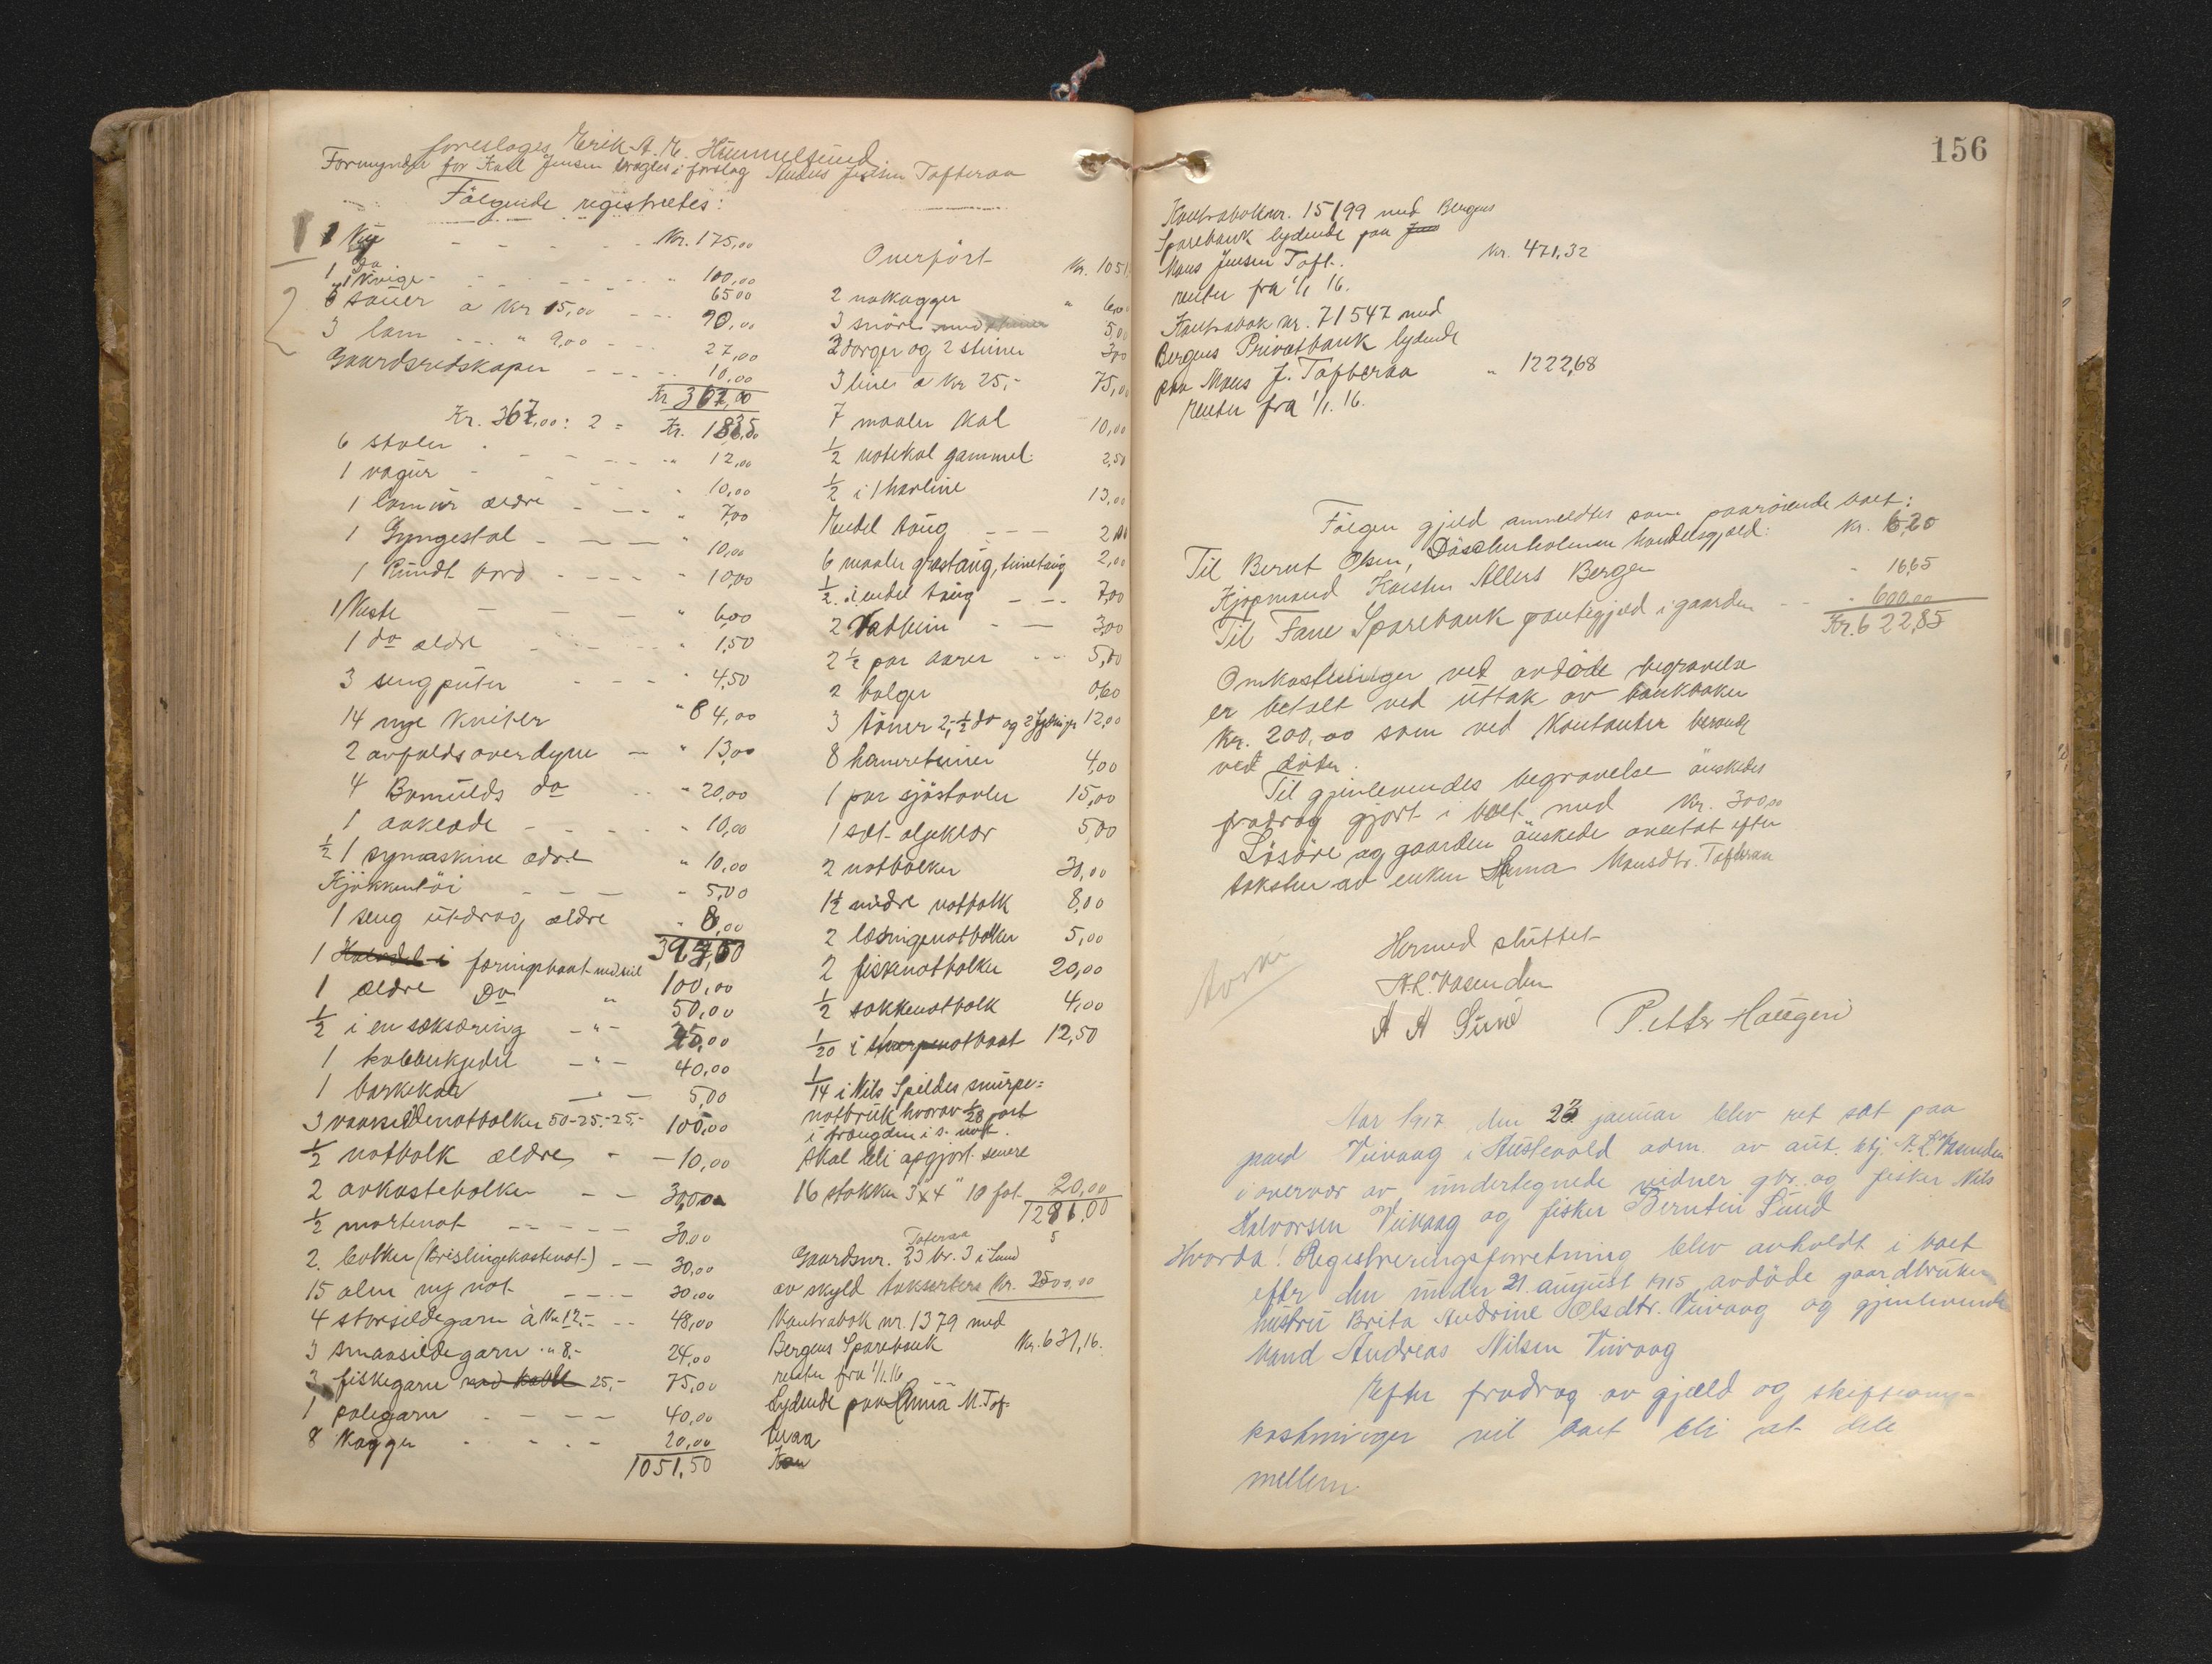 foreslages Erik A. M. Hummelsund
Formynder for Karl Jensen bragtes i forslag Anders Jensen Tofteraa
Følgende registrertes:
1 Kue - - - - - Kr. 175,00
1 do - - - - - " 100,00
1 Kvige - - - 65 00
6 sauer a Kr 15,00 - - - 90,00
3 lam - - - " 9,00 - - - 27,00
Gaardsredskaper - - - - 10,00
Kr 367,00
Kr. 367,00 : 2 = Kr. 183,50
6 stoler - - - - " 12,00
1 vægur - - - - " 10,00
1 ældre - - - " 7,00
1 Gyngestol - - - " 10,00
1 Rundt bord - - - - " 10,00
1 Kiste - - - " 6,00
1 do ældre - - - " 1,50
3 sengputer - - - " 4,50
14 nye Kniver " 84,00
2 avfaldsoverdyner - " 13,00
4 Bomulds do - - " 20,00
1 aaklæde - - - - " 10,00
1/2 1 symaskine ældre " 10,00
Kjøkkentøi - - - - 5,00
1 seng utdrag ældre " 8,00
1 Halvdel i føringsbaat med seil 100,00
1 ældre do " 50,00
1/2 i en seksæring - " -
1 kobberkjedel - " - 40,00
1 barkekar - - 5,00
3 vaarsildenotbolker 50-25.-25,- 100,00
1/2 notbolk ældre " - 10,00
2 avkastebolker - - 30,00
1/2 mortenot - - - - - 30,00
2. bolker (Brislingekastenot) - - 30,00
15 alen ny not - - - - 30,00
4 storsildegarn à Kr 12.- - - 48,00
3 smaasildegarn " 8.- 24,00
3 fiskegarn 25,- 75,00
1 palegarn - - - - 40,00
8 Kagger - - - - 20,00
1051,50
Overført Kr. 1051
2 " 6,00
3 snører med 5,0
2 dorger og 2 stener 3,00
3 liner a Kr 25.- 75,0
7 maaler Kal 10,00
1/2 notekal gammel. 2,50
1/2 i 1 havline 13,00
Endel taug - - - 2
6 maaler græstaug, 2,00
1/2 i endel taug - - - 7,00
2 - - 3,00
2 1/2 par aarer - - - 5,00
2 balger 0,60
3 tøner 2,-1/2 do og 12,00
8 4,00
1 par sjøstøvler 15,00
1 sæt oljeklær 5,00
2 notbolker 30,00
1 1/2 mindre notbolk 8,00
2 notbolker 5,00
2 fiskenotbolker 20,00
1/2 sækkenotbolk 4,00
1/20 i notbaat 12,50
1/14 i Nils Spildes snurpe=
notbruk hvorav 1/28 part
i s. not.
Skal bli opgjort senere
16 stokker 3"x4" 10 fot 20,00
1281.00
Tofteraa
Gaardsnr. 23 br. 3 i Sund
av skyld taksertes Kr. 2500,00
Kontrabok nr. 1379 med
Bergens Sparebank Kr. 631,16.
renter fra 1/1.16
Lydende paa Anna M. Tof-
teraa
156
Kontrabok nr. 15199 med Bergens
Sparebank lydende paa
Mons Jensen Toft. Kr. 471,32
renter fra 1/1 16.
Kontrabok nr. 71547 med
Bergens Privatbank lydende
paa Mons J. Tofteraa " 1222,68
renter fra 1/1.16.
Følgen gjeld anmeldtes som paarørende boet:
Til Bernt Olsen, handelsgjæld: Kr. 6,20
Kjøpmand Karsten Allers Bergen - 16,65
Til Fane Sparebank pantegjeld i gaarden - - " 600,00
Kr. 622,85
Omkostninger ved avdøde begravelse
er betalt ved uttak av bankboken
Kr. 200,00 som ved Kontanter
ved døden.
Til gjenlevendes begravelse ønskedes
fradrag gjort i boet med Kr. 300,00
Løsøre og gaarden ønskede overtat efter
taksten av enken Anna Monsdtr. Tofteraa
Hermed sluttet
A. L. Vasenden
A A Sund Petter Haugen
Aar 1917 den 23 januar blev ret sat paa
gaard Vinvaag i Austevold adm. av aut. A. L. Vasenden
i overvær av undertegnede vidner gbr. og fisker Nils
Halvorsen Vinvaag og fisker Berntin Sund
Hvorda! Registreringsforretning blev avholdt i boet
efter den under 21 august 1915 avdøde gaardbruker
hustru Brita Andrine Olsdtr. Vinvaag og gjenlevende
mand Andreas Nilsen Vinvaag
Efter fradrag av gjæld og skifteom=
kostninger vil boet bli at dele
mellem.